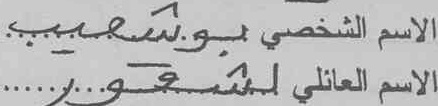 الاسم الشخصي بوشعيب
الاسم العائلي لشقور